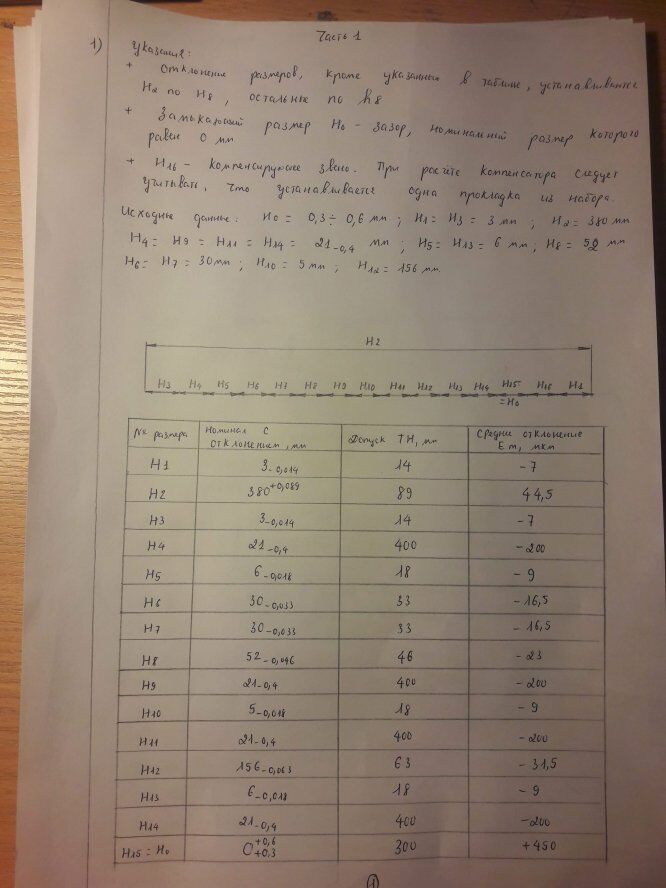 Часть 1
1)
Указания:
+ Отклонение размеров, кроме указанных в таблице, устанавливается
H2 по H8, остальные по h8
+ Замыкающий размер H0 - зазор, номинальный размер которого
равен 0 мм
+ H16 - компенсирующее звено. При расчёте компенсатора следует
учитывать, что устанавливается одна прокладка из набора.
Исходные данные: H0 = 0,3 ÷ 0,6 мм ; H1 = H3 = 3 мм ; H2 = 380 мм
H4 = H9 = H11 = H14 = 21-0,4 мм ; H5 = H13 = 6 мм ; H8 = 52 мм
H6 = H7 = 30 мм ; H10 = 5 мм ; H12 = 156 мм
H2
H3 H4 H5 H6 H7 H8 H9 H10 H11 H12 H13 H14 H15 H16 H1
=H0
№ размера Номинал с отклонением, мм Допуск TH, мм Средние отклонение Em, мкм
H1 3-0,014 14 -7
H2 380+0,089 89 44,5
H3 3-0,014 14 -7
H4 21-0,4 400 -200
H5 6-0,018 18 -9
H6 30-0,033 33 -16,5
H7 30-0,033 33 -16,5
H8 52-0,046 46 -23
H9 21-0,4 400 -200
H10 5-0,018 18 -9
H11 21-0,4 400 -200
H12 156-0,063 63 -31,5
H13 6-0,018 18 -9
H14 21-0,4 400 -200
H15 = H0 0+0,6 +0,3 300 +450
1